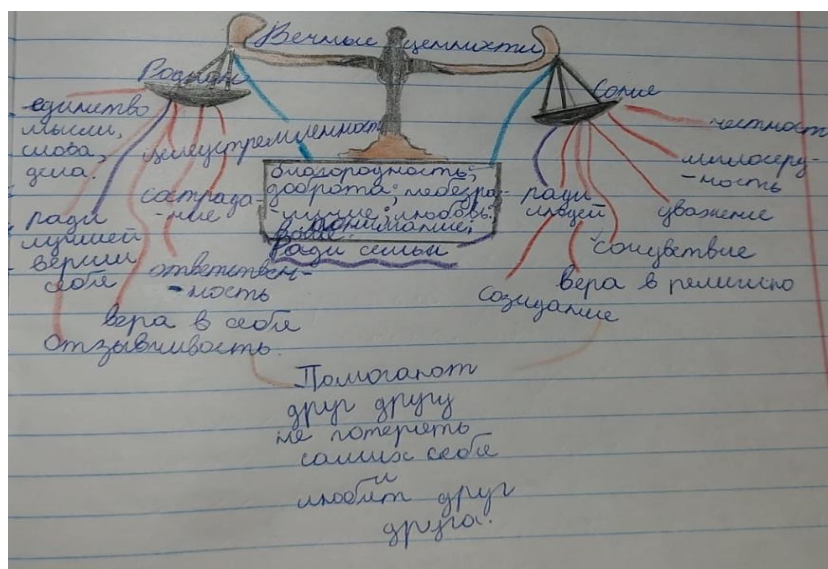 Вечные ценности
Родион
единство
мысли,
слова,
дела.
целеустремленность
сострада-
-ние
ради
лучшей
версии
себя
ответствен-
-ность
вера в себя
Отзывчивость.
благородность;
доброта; небезра-
-личие; любовь;
понимание;
Ради семьи
Соня
честность
милосерд-
-ность
ради
людей
уважение
сочувствие
вера в религию
созидание
Помогают
друг другу
не потерять
самих себя
и
любят друг
друга.